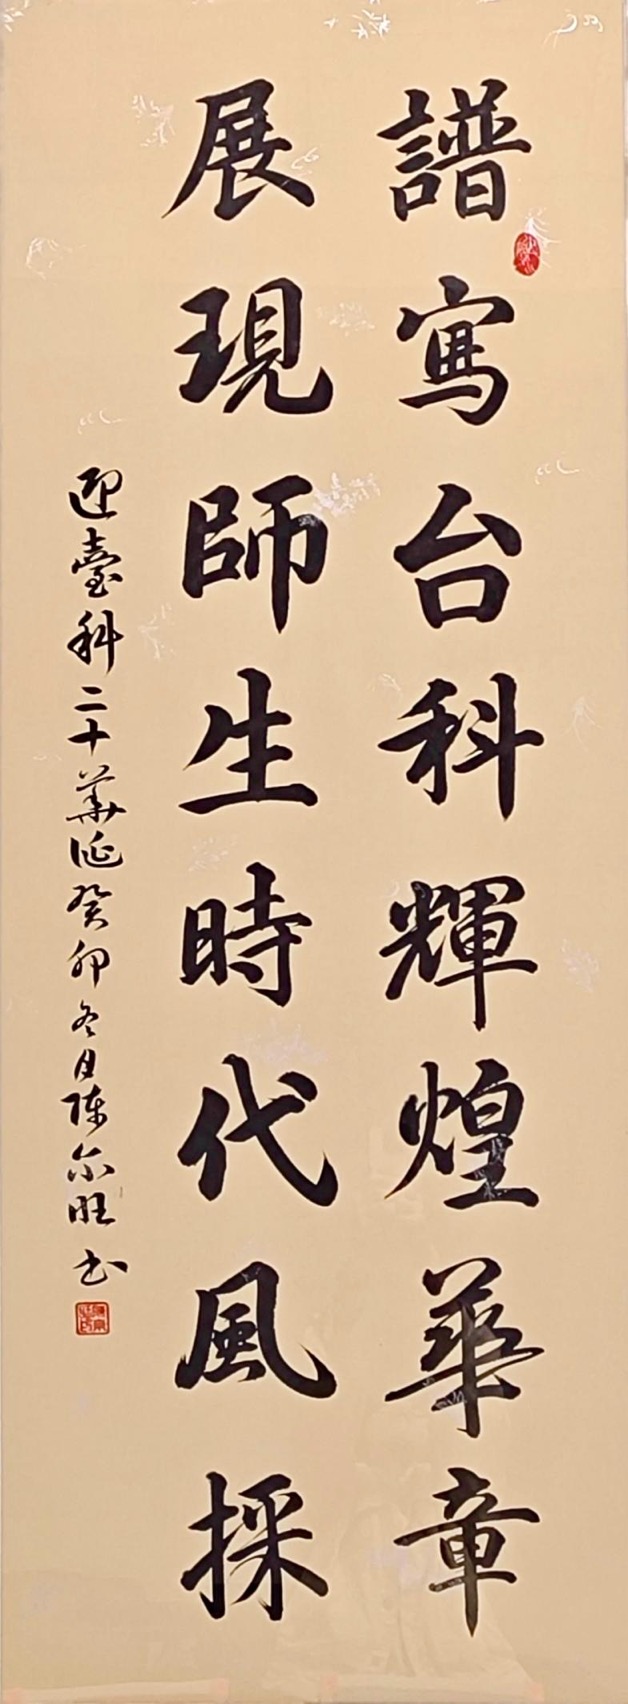 譜寫台科輝煌華章
展現師生時代風採
迎臺科二十華诞癸卯冬月陈尔旺书